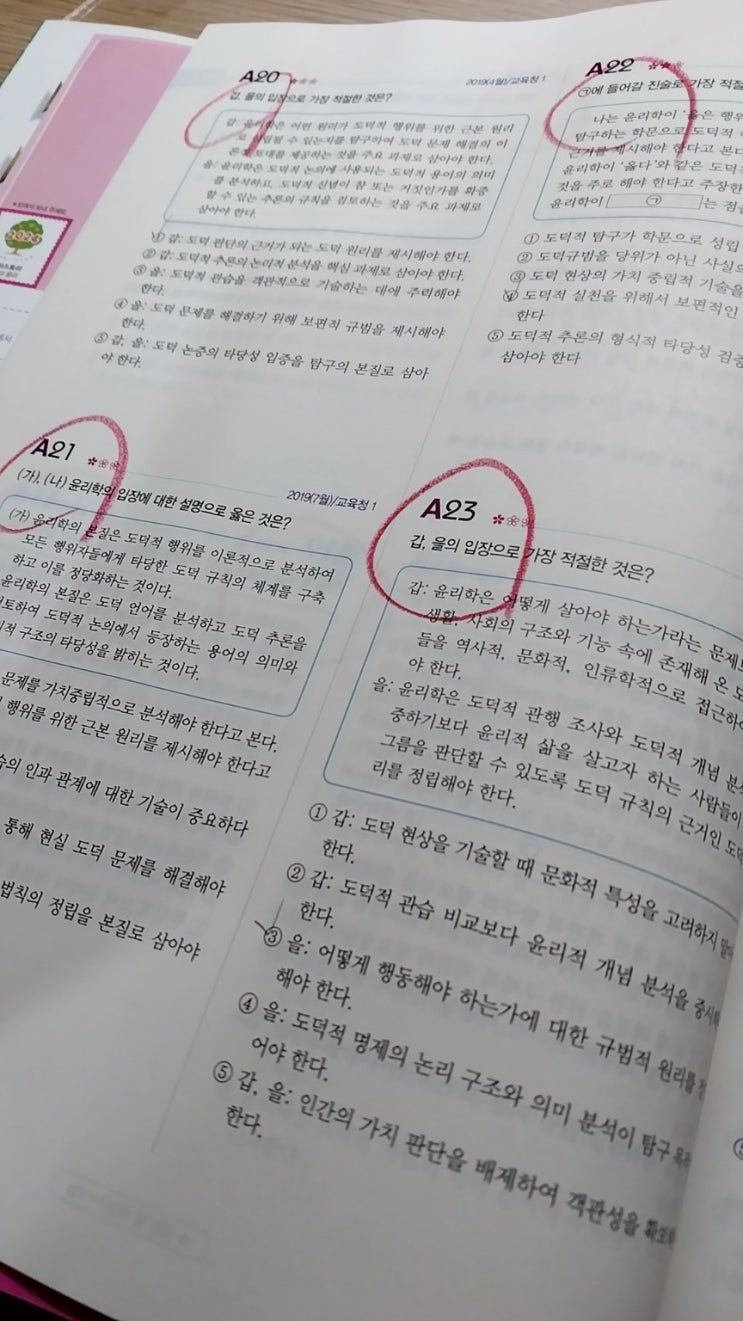 A20
2019(4월)/교육청 1
갑, 을의 입장으로 가장 적절한 것은?
갑: 윤리학은 어떤 원리가 도덕적 행위를 위한 근본 원리
로 성립될 수 있는지를 탐구하여 도덕 문제 해결의 이
론적 토대를 제공하는 것을 주요 과제로 삼아야 한다.
을: 윤리학은 도덕적 논의에 사용되는 도덕적 용어의 의미
를 분석하고, 도덕적 신념이 참 또는 거짓인가를 확증
할 수 있는 추론의 규칙을 검토하는 것을 주요 과제로
삼아야 한다.
① 갑: 도덕 판단의 근거가 되는 도덕 원리를 제시해야 한다.
② 갑: 도덕적 추론의 논리적 분석을 핵심 과제로 삼아야 한다.
③ 을: 도덕적 관습을 객관적으로 기술하는 데에 주력해야
한다.
④ 을: 도덕 문제를 해결하기 위해 보편적 규범을 제시해야
한다.
⑤ 갑, 을: 도덕 논증의 타당성 입증을 탐구의 본질로 삼아
야 한다.
A21
2019(7월)/교육청 1
(가), (나) 윤리학의 입장에 대한 설명으로 옳은 것은?
(가) 윤리학의 본질은 도덕적 행위를 이론적으로 분석하여
모든 행위자들에게 타당한 도덕 규칙의 체계를 구축
하고 이를 정당화하는 것이다.
윤리학의 본질은 도덕 언어를 분석하고 도덕 추론을
토하여 도덕적 논의에서 등장하는 용어의 의미와
적 구조의 타당성을 밝히는 것이다.
문제를 가치중립적으로 분석해야 한다고 본다.
행위를 위한 근본 원리를 제시해야 한다고
습의 인과 관계에 대한 기술이 중요하다
통해 현실 도덕 문제를 해결해야
법칙의 정립을 본질로 삼아야
A22
㉠에 들어갈 진술로 가장 적절
나는 윤리학이 '옳은 행위
탐구하는 학문으로 도덕적
근거를 제시해야 한다고 본다
윤리학이 '옳다'와 같은 도덕적
것을 주로 해야 한다고 주장한
윤리학이 ㉠ 는 점을
① 도덕적 탐구가 학문으로 성립
② 도덕규범을 당위가 아닌 사실
③ 도덕 현상의 가치 중립적 기술을
④ 도덕적 실천을 위해서 보편적인
한다
⑤ 도덕적 추론의 형식적 타당성 검증
삼아야 한다
A23
갑, 을의 입장으로 가장 적절한 것은?
갑: 윤리학은 어떻게 살아야 하는가라는 문제
생활, 사회의 구조와 기능 속에 존재해 온 도
들을 역사적, 문화적, 인류학적으로 접근하
야 한다.
을: 윤리학은 도덕적 관행 조사와 도덕적 개념 분
중하기보다 윤리적 삶을 살고자 하는 사람들이
그름을 판단할 수 있도록 도덕 규칙의 근거인 도덕
리를 정립해야 한다.
① 갑: 도덕 현상을 기술할 때 문화적 특성을 고려하지 말
한다.
② 갑: 도덕적 관습 비교보다 윤리적 개념 분석을 중시
한다.
③ 을: 어떻게 행동해야 하는가에 대한 규범적 원리를
해야 한다.
④ 을: 도덕적 명제의 논리 구조와 의미 분석이 탐구 목
어야 한다.
⑤ 갑, 을: 인간의 가치 판단을 배제하여 객관성을 확보
한다.
2024